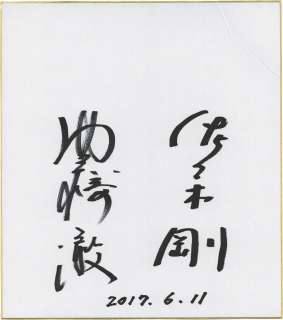 佐々木剛
岡崎徹
2017.6.11